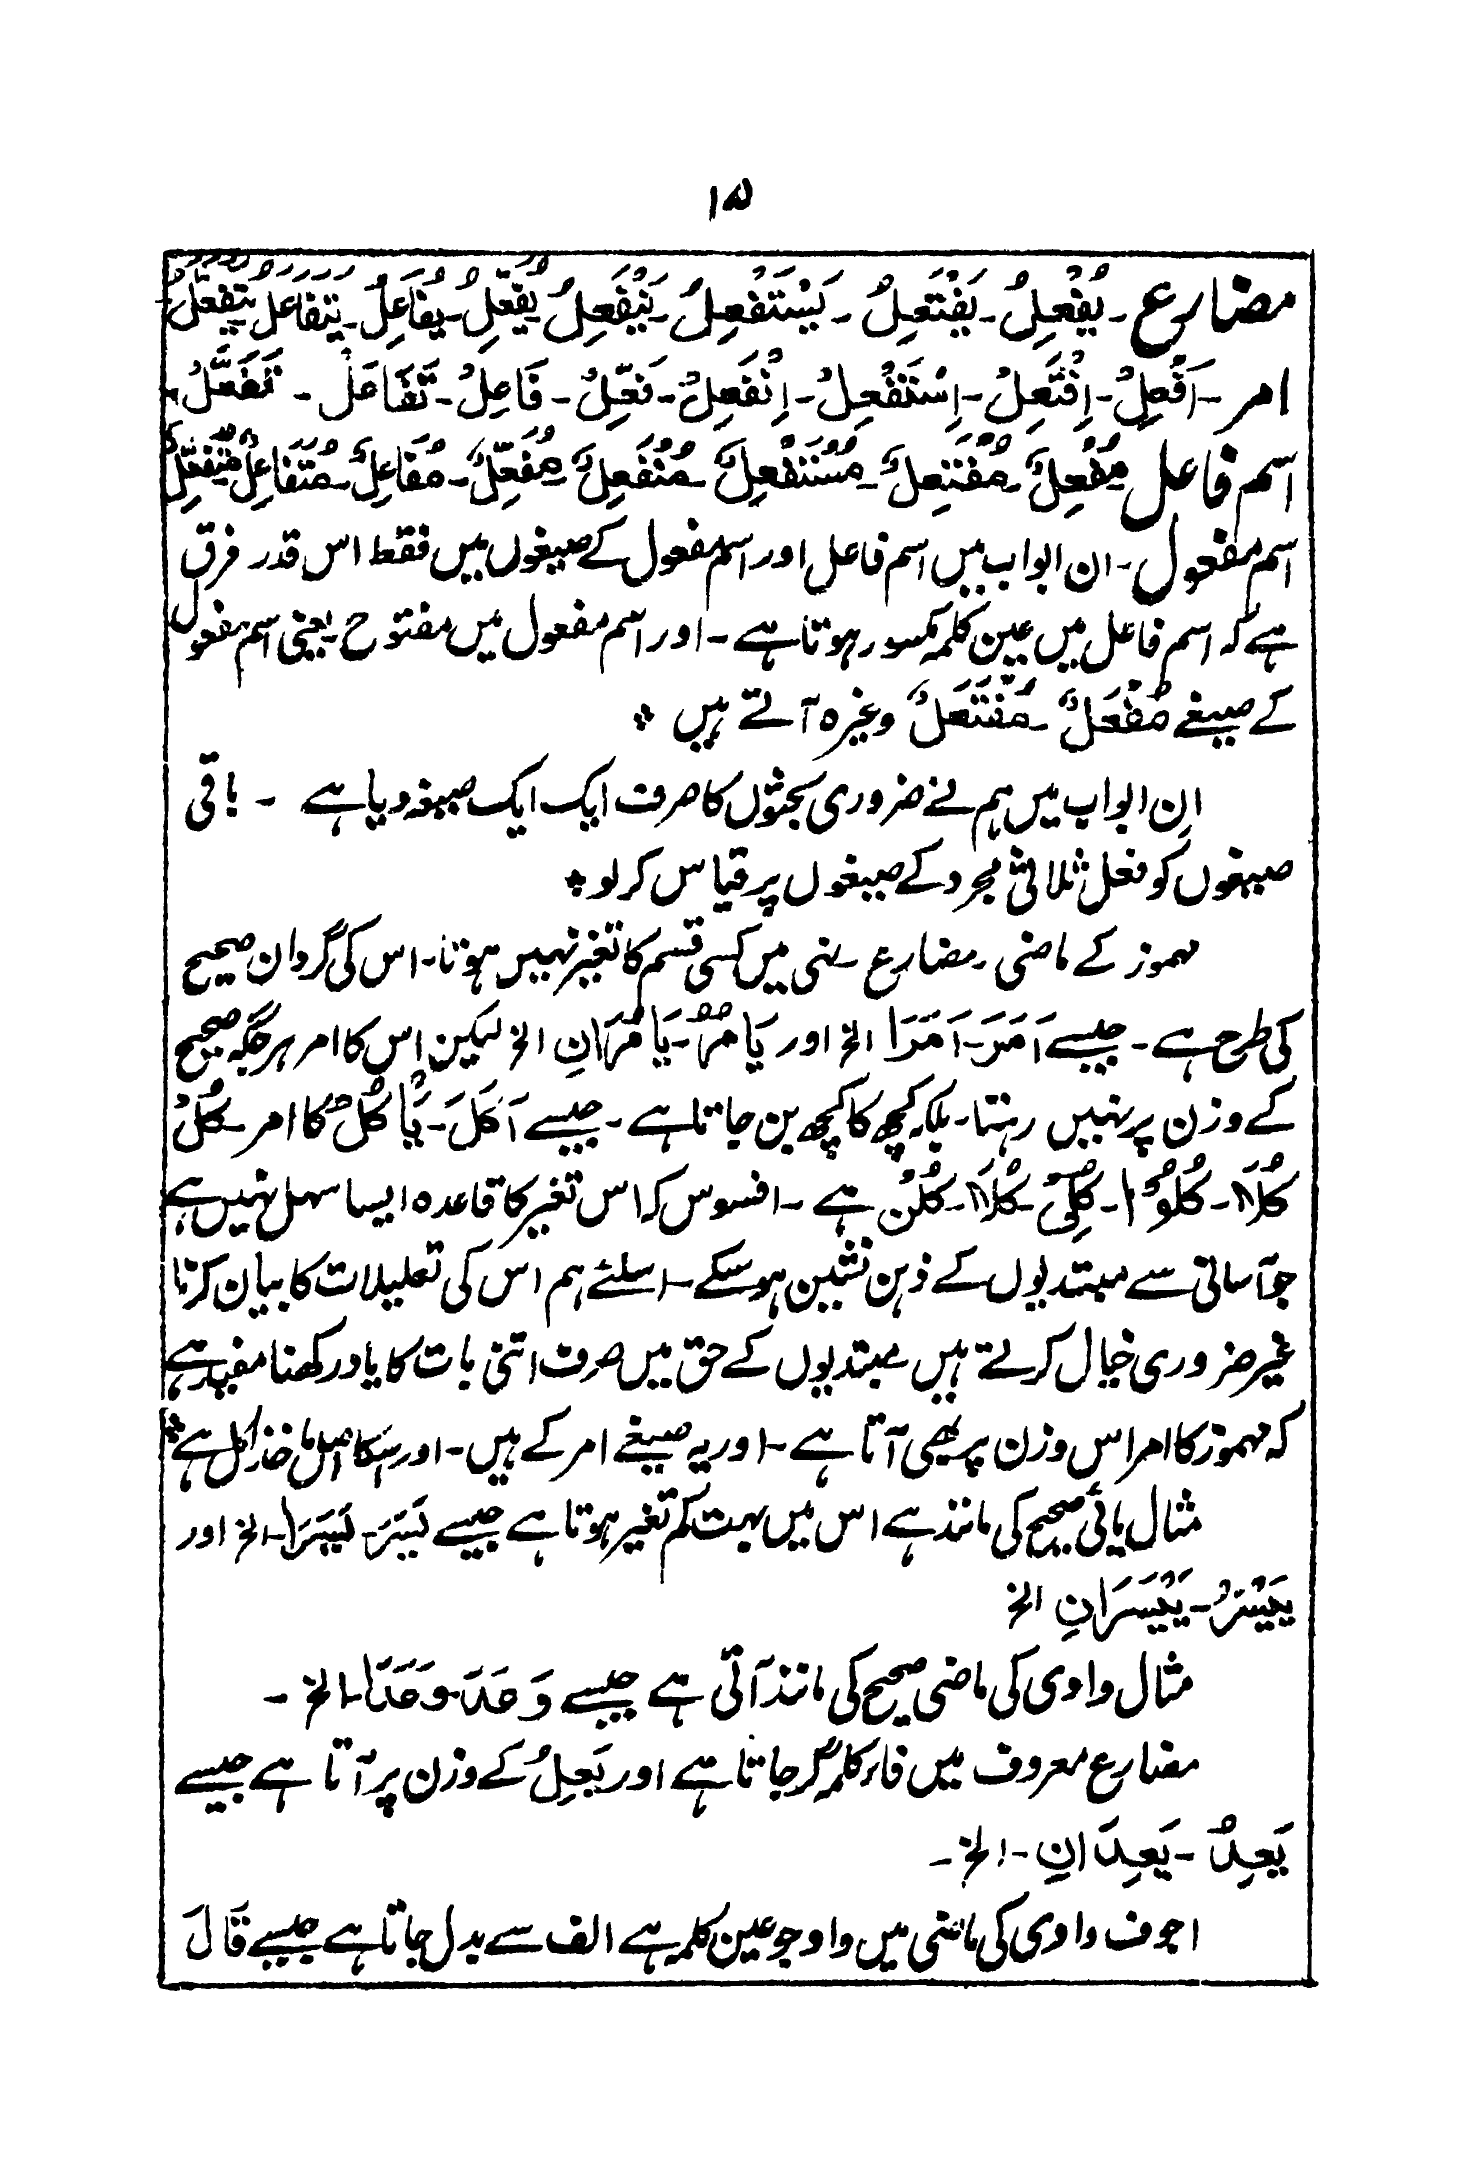 ۱۵
مضارع ۔ یُفْعِلُ ۔ یَفْتَعِلُ ۔ یَسْتَفْعِلُ ۔ یَنْفَعِلُ ۔ یُفَعِّلُ ۔ یُفَاعِلُ ۔ یَتَفَاعَلُ یَتَفَعَّلُ
امر ۔ اَفْعِلْ ۔ اِفْتَعِلْ ۔ اِسْتَفْعِلْ ۔ اِنْفَعِلْ ۔ فَعِّلْ ۔ فَاعِلْ ۔ تَفَاعَلْ ۔ تَفَعَّلْ
اسم فاعل مُفْعِلٌ ۔ مُفْتَعِلٌ ۔ مُسْتَفْعِلٌ ۔ مُنْفَعِلٌ ۔ مُفَعِّلٌ ۔ مُفَاعِلٌ ۔ مُتَفَاعِلٌ مُتَفَعِّلٌ
اسم مفعول ۔ ان ابواب میں اسم فاعل اور اسم مفعول کے صیغوں میں فقط اس قدر فرق
ہے کہ اسم فاعل میں عین کلمہ مکسور ہوتا ہے ۔ اور اسم مفعول میں مفتوح یعنی اسم مفعول
کے صیغے مُفْعَلٌ ۔ مُفْتَعَلٌ وغیرہ آتے ہیں *
ان ابواب میں ہم نے ضروری بحثوں کا صرف ایک ایک صیغہ دیا ہے ۔ باقی
صیغوں کو فعل ثلاثی مجرد کے صیغوں پر قیاس کر لو *
مہموز کے ماضی ۔ مضارع ۔ نہی میں کسی قسم کا تغیر نہیں ہوتا ۔ اس کی گردان صحیح
کی طرح ہے ۔ جیسے اَمَرَ ۔ اَمَرَا الخ اور یَامُرُ ۔ یَامُرَانِ الخ لیکن اس کا امر ہر جگہ صحیح
کے وزن پر نہیں رہتا ۔ بلکہ کچھ کا کچھ بن جاتا ہے ۔ جیسے اَکَلَ ۔ یَاکُلُ کا امر ۔ کُلْ
کُلَا ۔ کُلُوْا ۔ کُلِیْ ۔ کُلَا ۔ کُلْنَ ہے ۔ افسوس کہ اس تغیر کا قاعدہ ایسا سہل نہیں ہے
جو آسانی سے مبتدیوں کے ذہن نشین ہو سکے ۔ اسلئے ہم اس کی تعلیلات کا بیان کرنا
غیر ضروری خیال کرتے ہیں مبتدیوں کے حق میں صرف اتنی بات کا یاد رکھنا مفید ہے
کہ مہموز کا امر اس وزن پر بھی آتا ہے ۔ اور یہ صیغے امر کے ہیں ۔ اور اسکا اصل ماخذ اکل ہے *
مثال یائی صحیح کی مانند ہے اس میں بہت کم تغیر ہوتا ہے جیسے یَسَرَ ۔ یَسَرَا ۔ الخ اور
یَیْسَرُ ۔ یَیْسَرَانِ الخ
مثال واوی کی ماضی صحیح کی مانند آتی ہے جیسے وَعَدَ ۔ وَعَدَا ۔ الخ ۔
مضارع معروف میں فاء کلمہ گر جاتا ہے اور یَعِلُ کے وزن پر آتا ہے جیسے
یَعِدُ ۔ یَعِدَانِ ۔ الخ ۔
اجوف واوی کی ماضی میں واو جو عین کلمہ ہے الف سے بدل جاتا ہے جیسے قَالَ